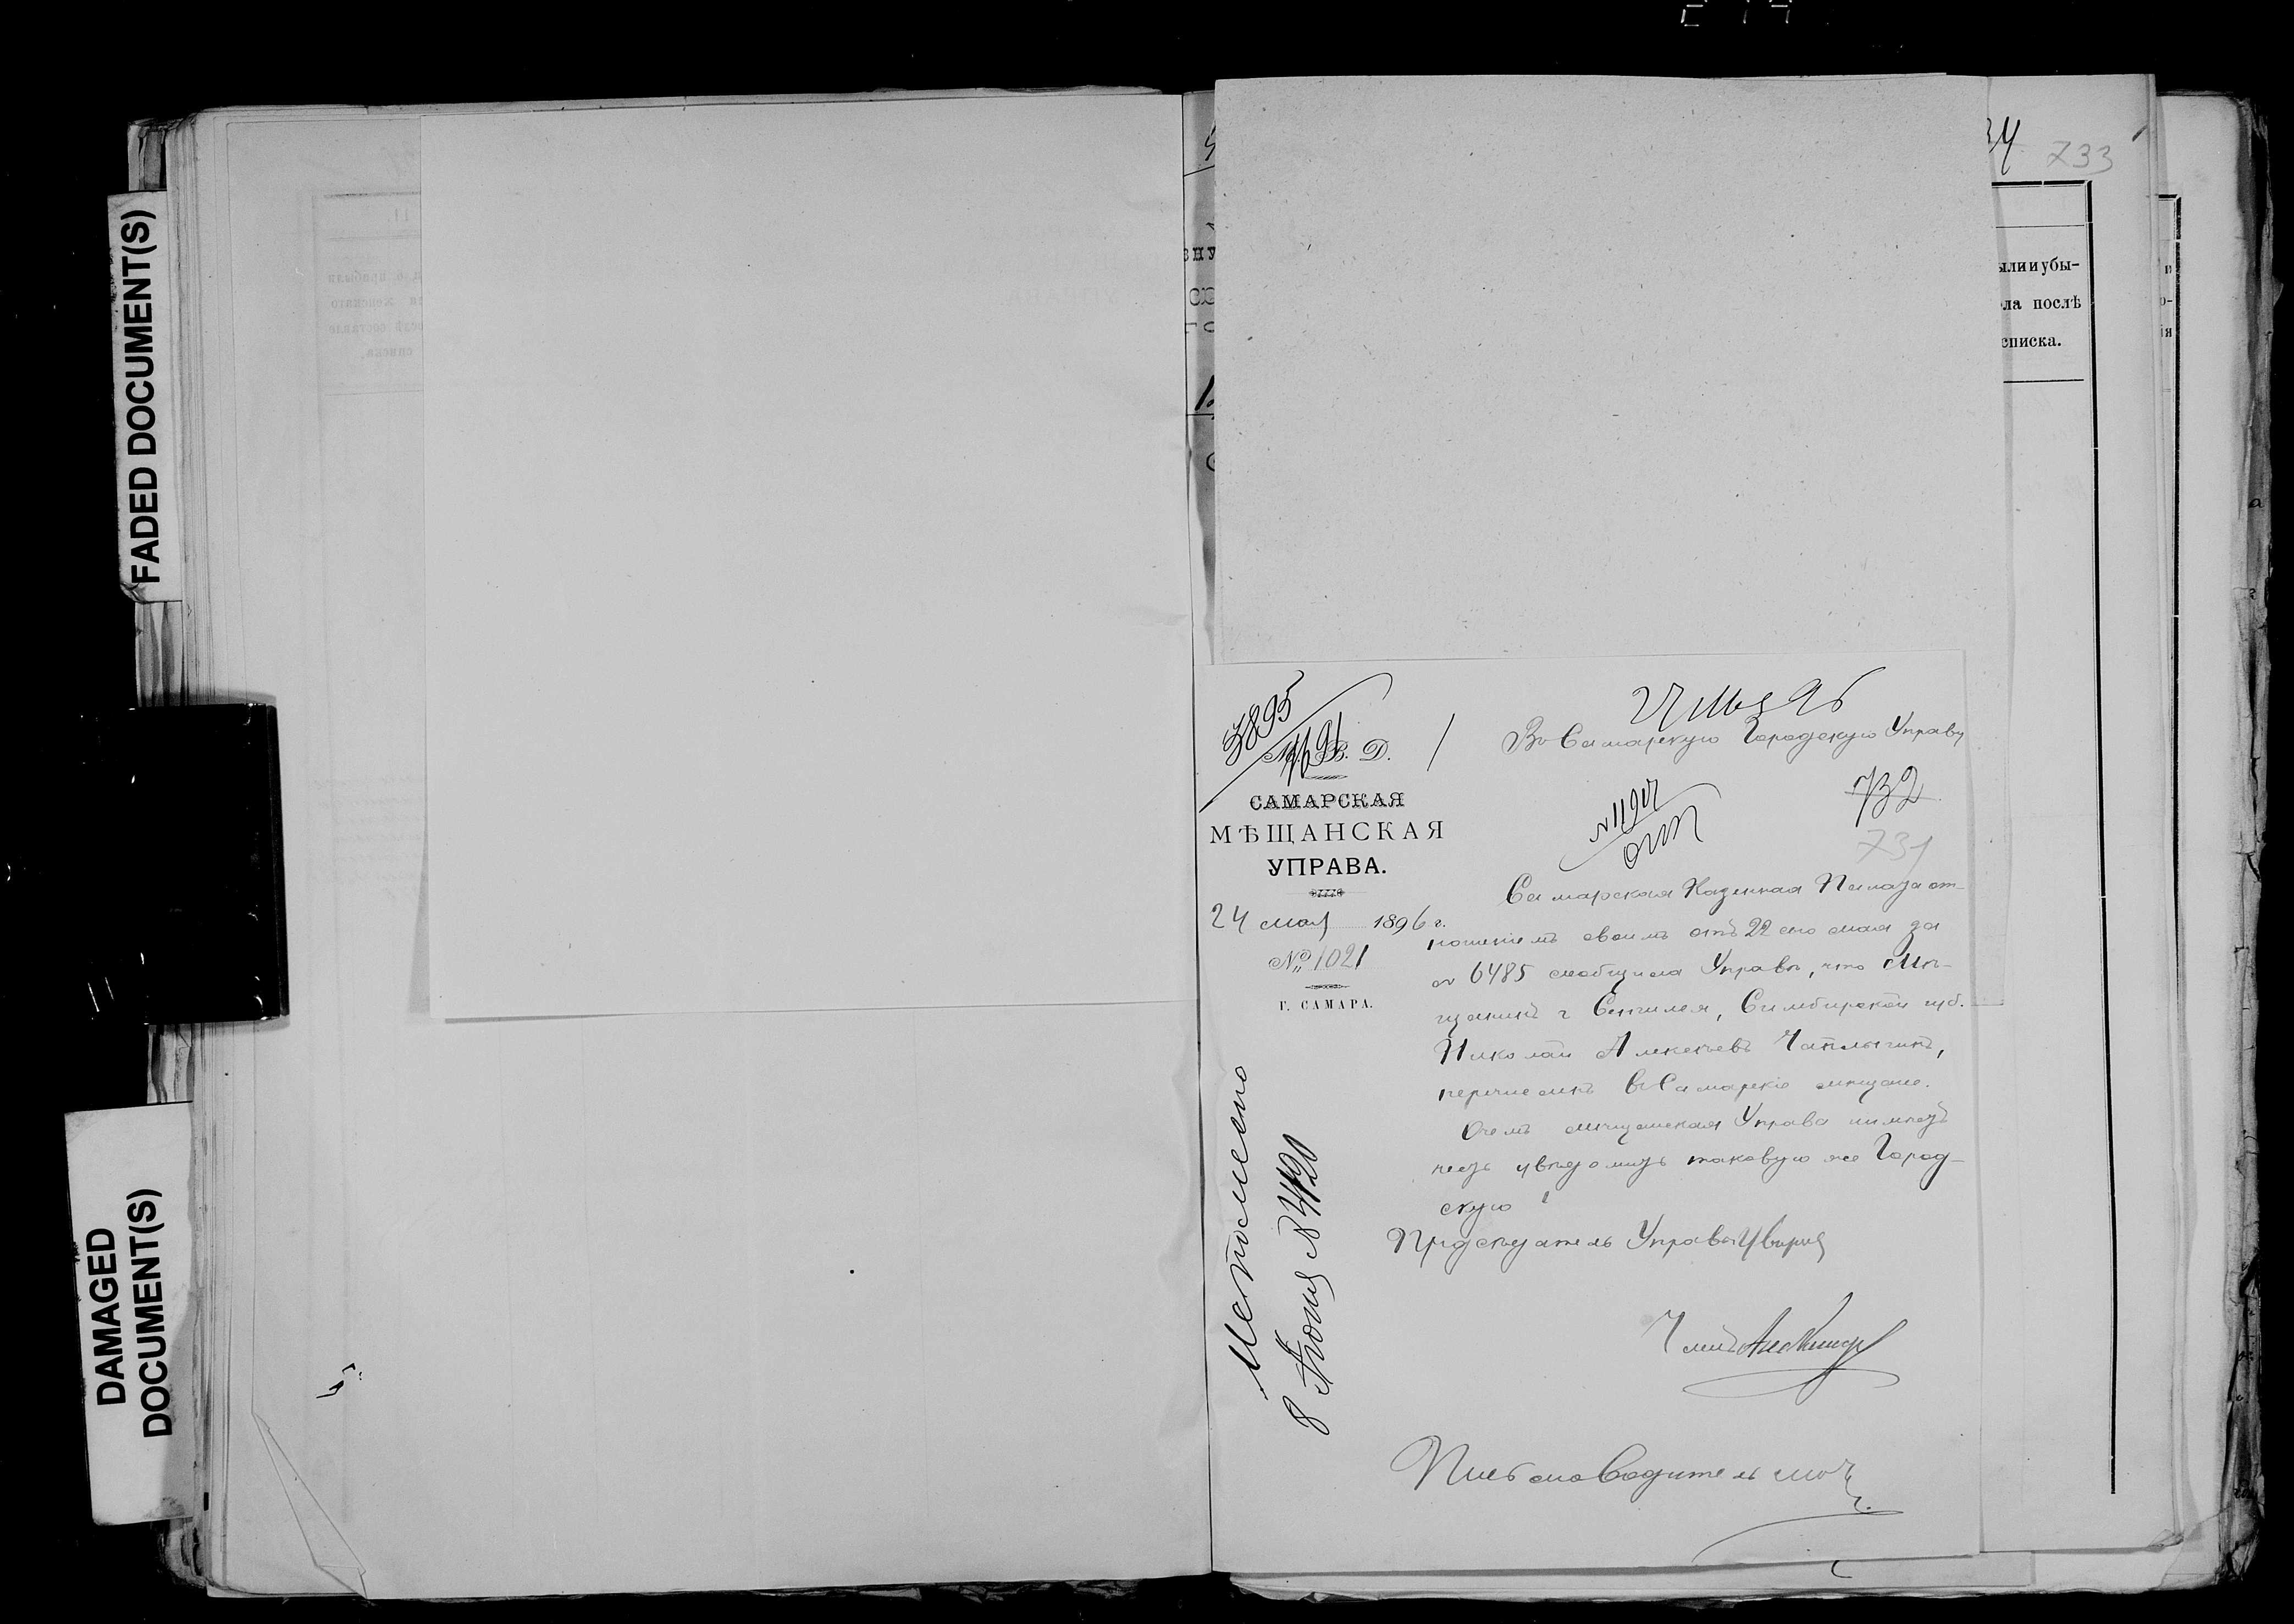 FADED DOCUMENT(S)
DAMAGED
DOCUMENT(S)
733
ыли и убы-
ла послѣ
списка.
3895
М. В. Д.
САМАРСКАЯ
МѢЩАНСКАЯ
УПРАВА.
24 мая 1896 г.
№ 1021
Г. САМАРА.
Въ Самарскую Городскую Управу
732
731
Самарская Казенная Палата от-
ношеніемъ своимъ отъ 22 сего мая за
№ 6485 сообщила Управѣ, что Мѣ-
щанинъ г Сенгилея, Симбирской губ.
Николай Алексѣевъ Чаплыгинъ,
перечисленъ въ Самарскіе мѣщане.
О чемъ мѣщанская Управа имѣетъ
честь увѣдомить таковую же Город-
скую
Предсѣдатель Управы
Членъ
Письмоводитель
Исполнено
8 Іюня № 4120